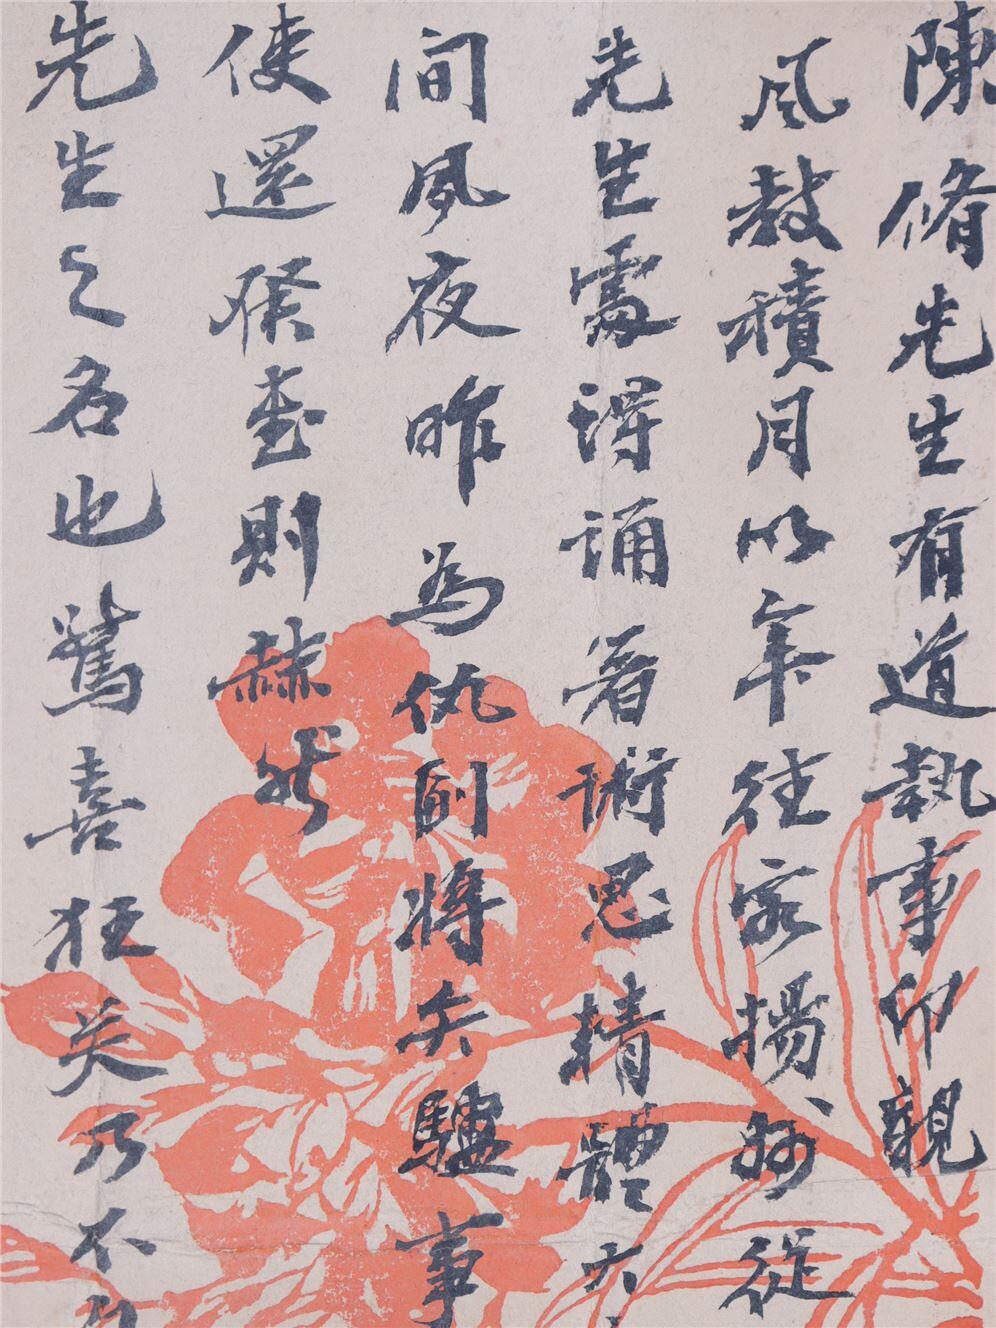 陳脩先生有道執事仰親
風教積月以年往客揚、州從
先生處得誦著術思精體大、
間夙夜昨為仇劊將矢驢事
使還假壺則赫然
先生之名也驚喜狂矣乃不